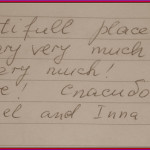 tifull place
ery very much
ery much!
e! спасибо
el and Inna